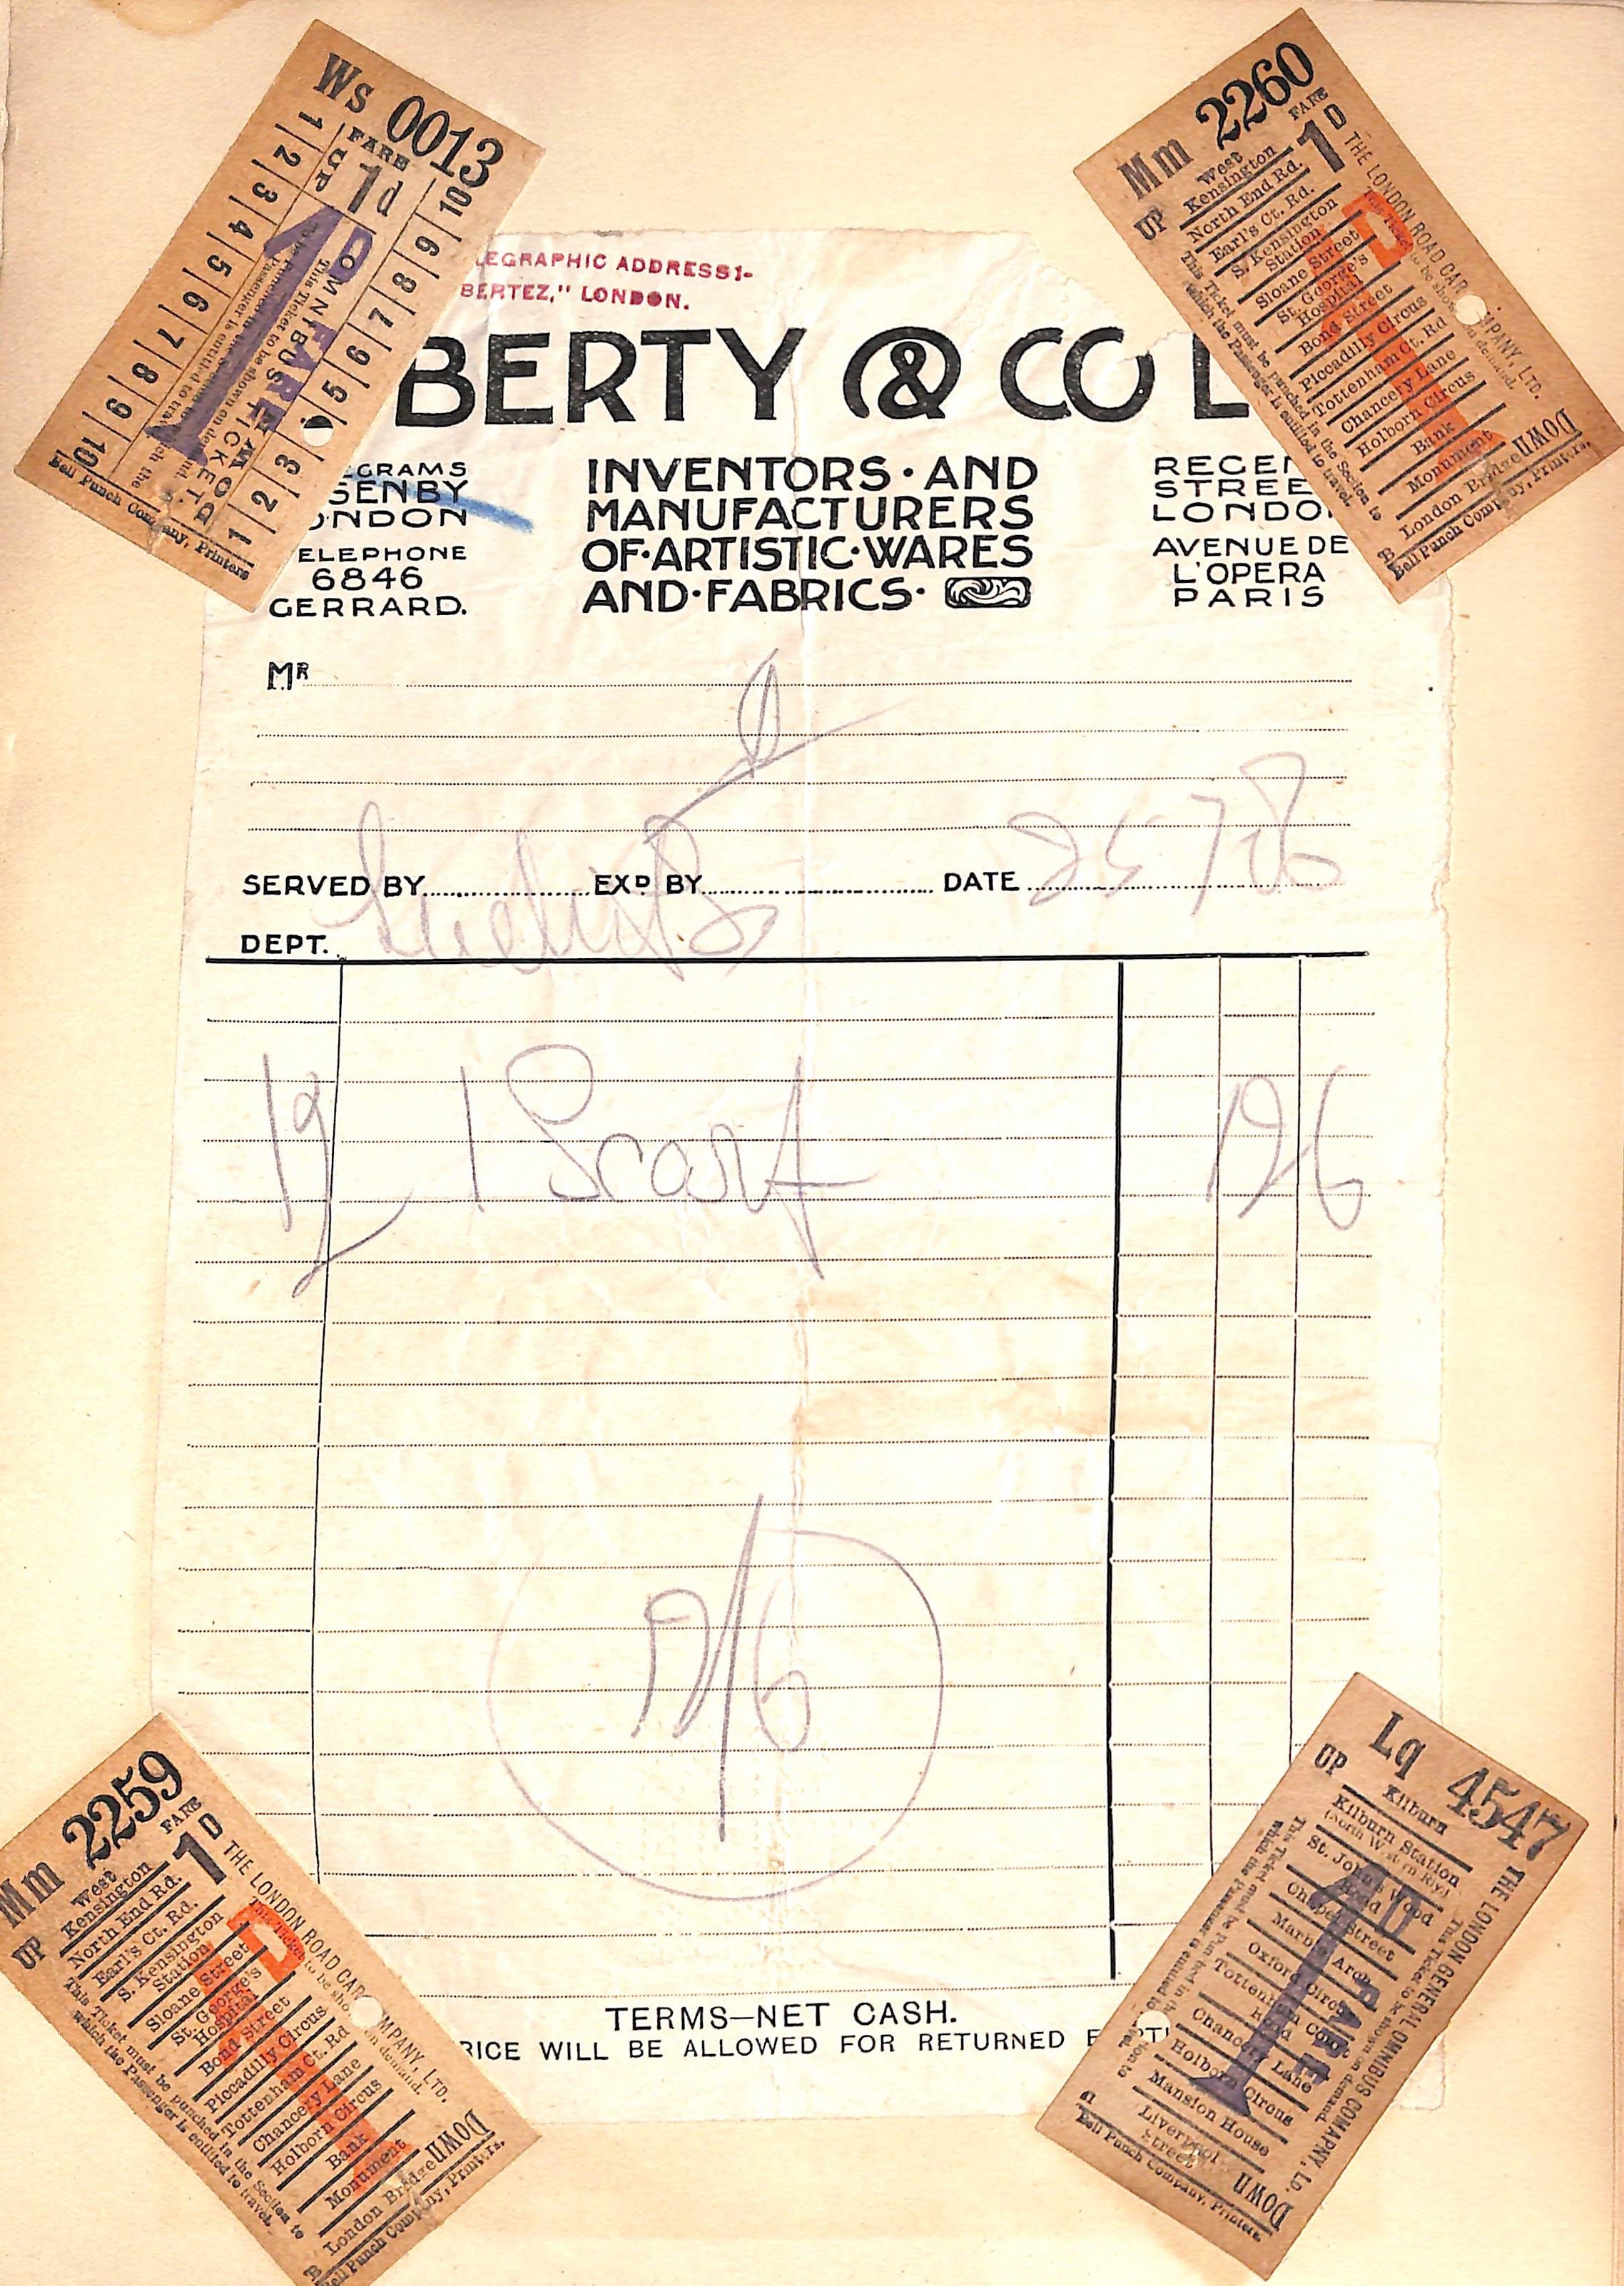 Ws 0013
FARE
UP 1d
1 2 3 4 5 6 7 8 9 10
10 9 8 7 6 5 4 3 2 1
OMNIBUS TICKET
This Ticket to be shown on demand
FARE
Bell Punch Company, Printers
Mm 2260
FARE
UP 1D
West Kensington
North End Rd.
Earl's Ct. Rd.
S. Kensington Station
Sloane Street
St. George's Hospital
Bond Street
Piccadilly Circus
Tottenham Ct. Rd
Chancery Lane
Holborn Circus
Bank
Monument
London Bridge
DOWN
THE LONDON ROAD CAR COMPANY, LTD.
This Ticket to be shown on demand.
This Ticket must be punched in the Section to
which the Passenger is entitled to travel.
Bell Punch Company, Printers.
LEGRAPHIC ADDRESS:-
BERTEZ," LONDON.
BERTY & CO L
GRAMS
SENBY
ONDON
ELEPHONE
6846
GERRARD.
INVENTORS · AND
MANUFACTURERS
OF·ARTISTIC·WARES
AND·FABRICS·
REGEN
STREE
LONDO
AVENUE DE
L'OPERA
PARIS
MR
SERVED BY EXD BY DATE 25 7 08
DEPT.
1
TERMS—NET CASH.
RICE WILL BE ALLOWED FOR RETURNED E
Mm 2259
FARE
UP 1D
West Kensington
North End Rd.
Earl's Ct. Rd.
S. Kensington Station
Sloane Street
St. George's Hospital
Bond Street
Piccadilly Circus
Tottenham Ct. Rd
Chancery Lane
Holborn Circus
Bank
Monument
London Bridge
DOWN
THE LONDON ROAD CAR COMPANY, LTD.
This Ticket to be shown on demand.
This Ticket must be punched in the Section to
which the Passenger is entitled to travel.
Bell Punch Company, Printers.
Lq 4547
UP
Kilburn
Kilburn Station
(North Westrn Rly)
St. John's Wood Road
Chapel Street
Marble Arch
Oxford Circus
Tottenham Court Road
Chancery Lane
Holborn Circus
Mansion House
Liverpool Street
DOWN
1D FARE
THE LONDON GENERAL OMNIBUS COMAPNY, LD.
This Ticket to be shown on demand.
This Ticket must be Punched in the Section to
which the Passenger is entitled to travel.
41
Bell Punch Company, Printers.